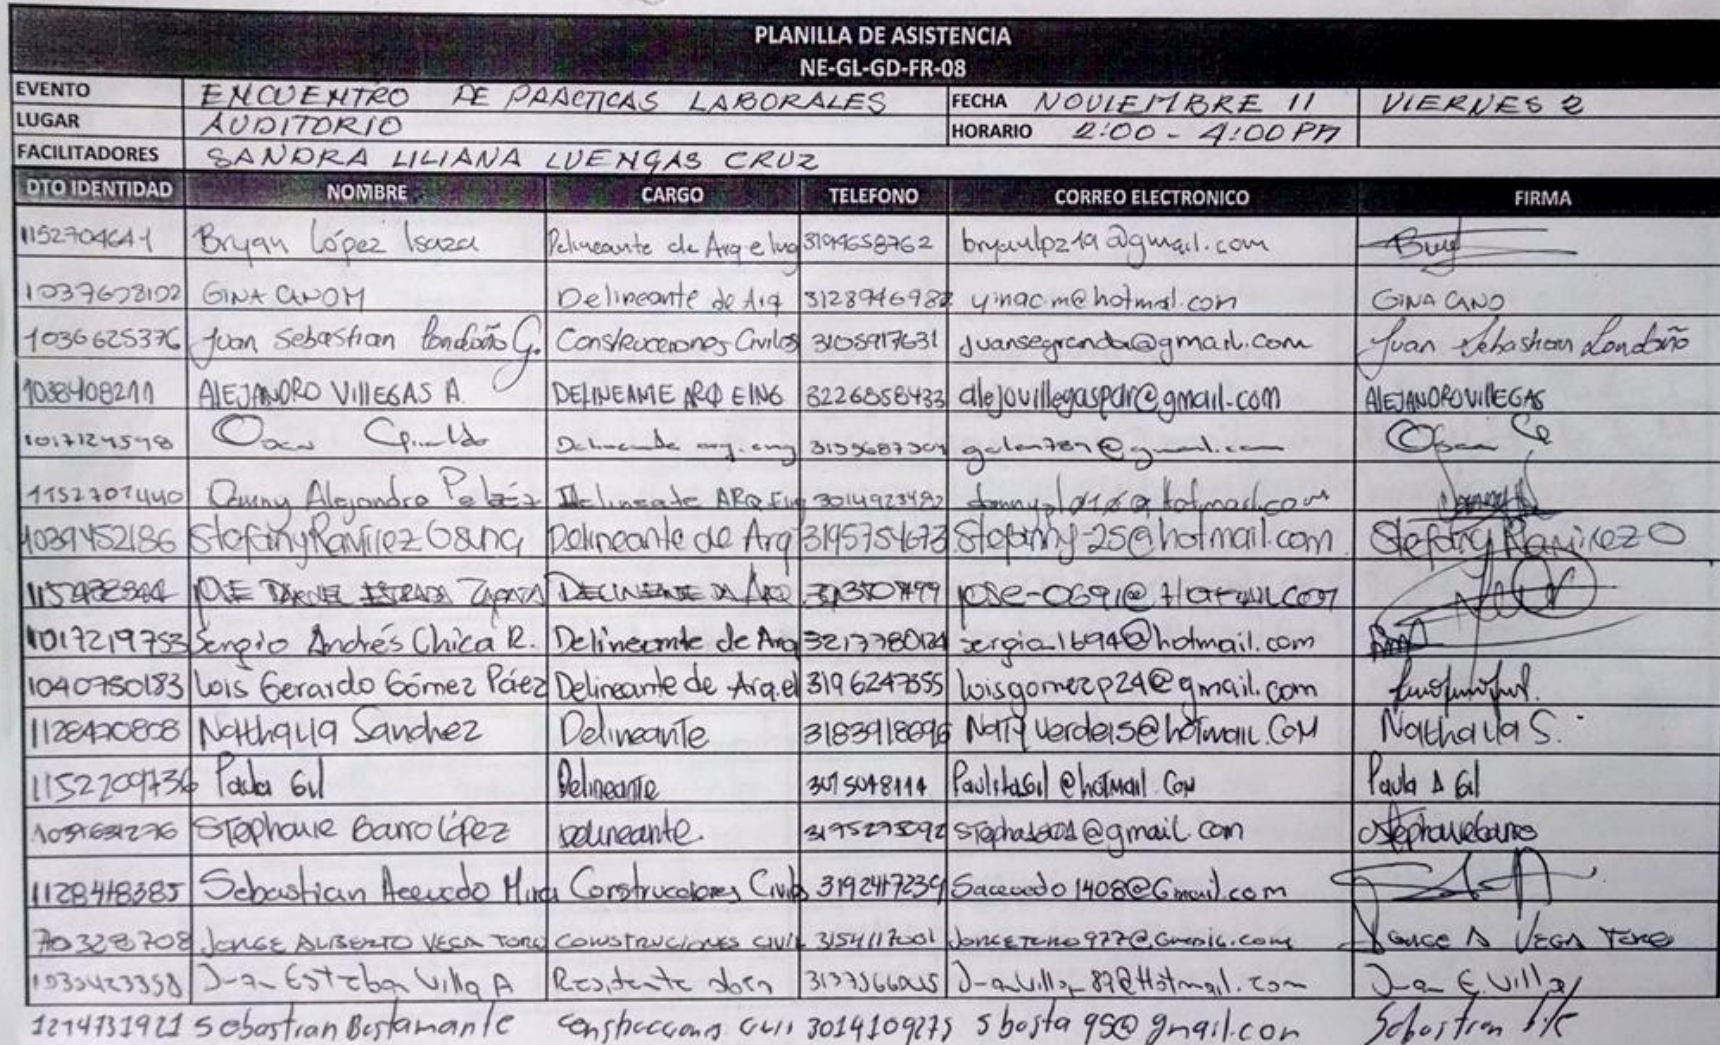 PLANILLA DE ASISTENCIA
NE-GL-GD-FR-08
EVENTO ENCUENTRO DE PRACTICAS LABORALES FECHA NOVIEMBRE 11 VIERNES
LUGAR AUDITORIO HORARIO 2:00 - 4:00 PM
FACILITADORES SANDRA LILIANA LUENGAS CRUZ
DTO IDENTIDAD NOMBRE CARGO TELEFONO CORREO ELECTRONICO FIRMA
Bryan López Isaza Delineante de Arq e Ing 3194658762 bryanlpz19@gmail.com
GINA CANO M Delineante de Arq yinacm@hotmal.com GINA CANO
1036625376 Juan Sebastian Londoño G. Construcciones Civiles 3105917631 juansegranda@gmail.com Juan Sebastian Londoño
1038408211 ALEJANDRO VILLEGAS A. DELINEANTE ARQ E ING 3226858433 alejovillegaspdr@gmail.com ALEJANDRO VILLEGAS
1017124598
1152701440 Danny Alejandro Peláez Delineate ARQ Ing 3014923482
1039452186 Stefany Ramirez Delineante de Arq 3195754673 Stefanny-25@hotmail.com Stefany Ramirez O
JOSE DANIEL ESTRADA ZAPATA DELINEANTE DA ARQ jose-0691@Hotmail.com
1017219753 Sergio Andrés Chica R. Delineante de Arq sergio.1694@hotmail.com
1040750183 Luis Gerardo Gómez Páez Delineante de Arq.eI 3196247355 luisgomezp24@gmail.com
1128420808 Nathalia Sanchez Delineante 3183918696 Natyverde15@hotmail.com Nathalia S.
1152209736 Paula Gil Delineante 3015048114 Paulitagil@hotmail.com Paula A Gil
Stephanie Barro López Delineante. 3195275092 @gmail.com
1128418385 Sebastian Acevedo Mira Construcciones Civiles 3192417239 Sacevedo1408@Gmail.com
70328708 JORGE ALBERTO VEGA TORO CONSTRUCIONES CIVIL 3154117001 JORGETORO977@Gmail.com JORGE A VEGA TORO
Juan Esteban Villa A Residente obra Juan E. Villa
1214731921 Sebastian Bustamante construcciones civis 3014109275 sbusta95@gmail.com Sebastian